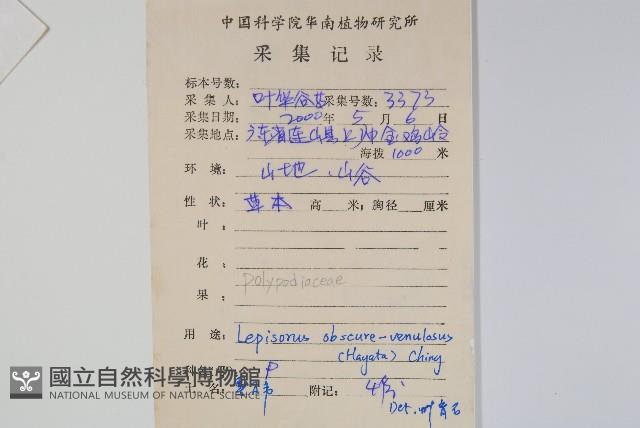 中国科学院华南植物研究所
采集记录
标本号数：
采集人：叶华谷 采集号数：3373
采集日期：2000年5月6日
采集地点：广东省连山县上帅金鸡岭
海拨 1000 米
环境：山地、山谷
性状：草本 高 米；胸径 厘米
叶：
花：
Polypodiaceae
果：
用途：Lepisorus obscure-venulosus
(Hayata) Ching
P
名： 附记：4份
Det.
國立自然科學博物館
NATIONAL MUSEUM OF NATURAL SCIENCE